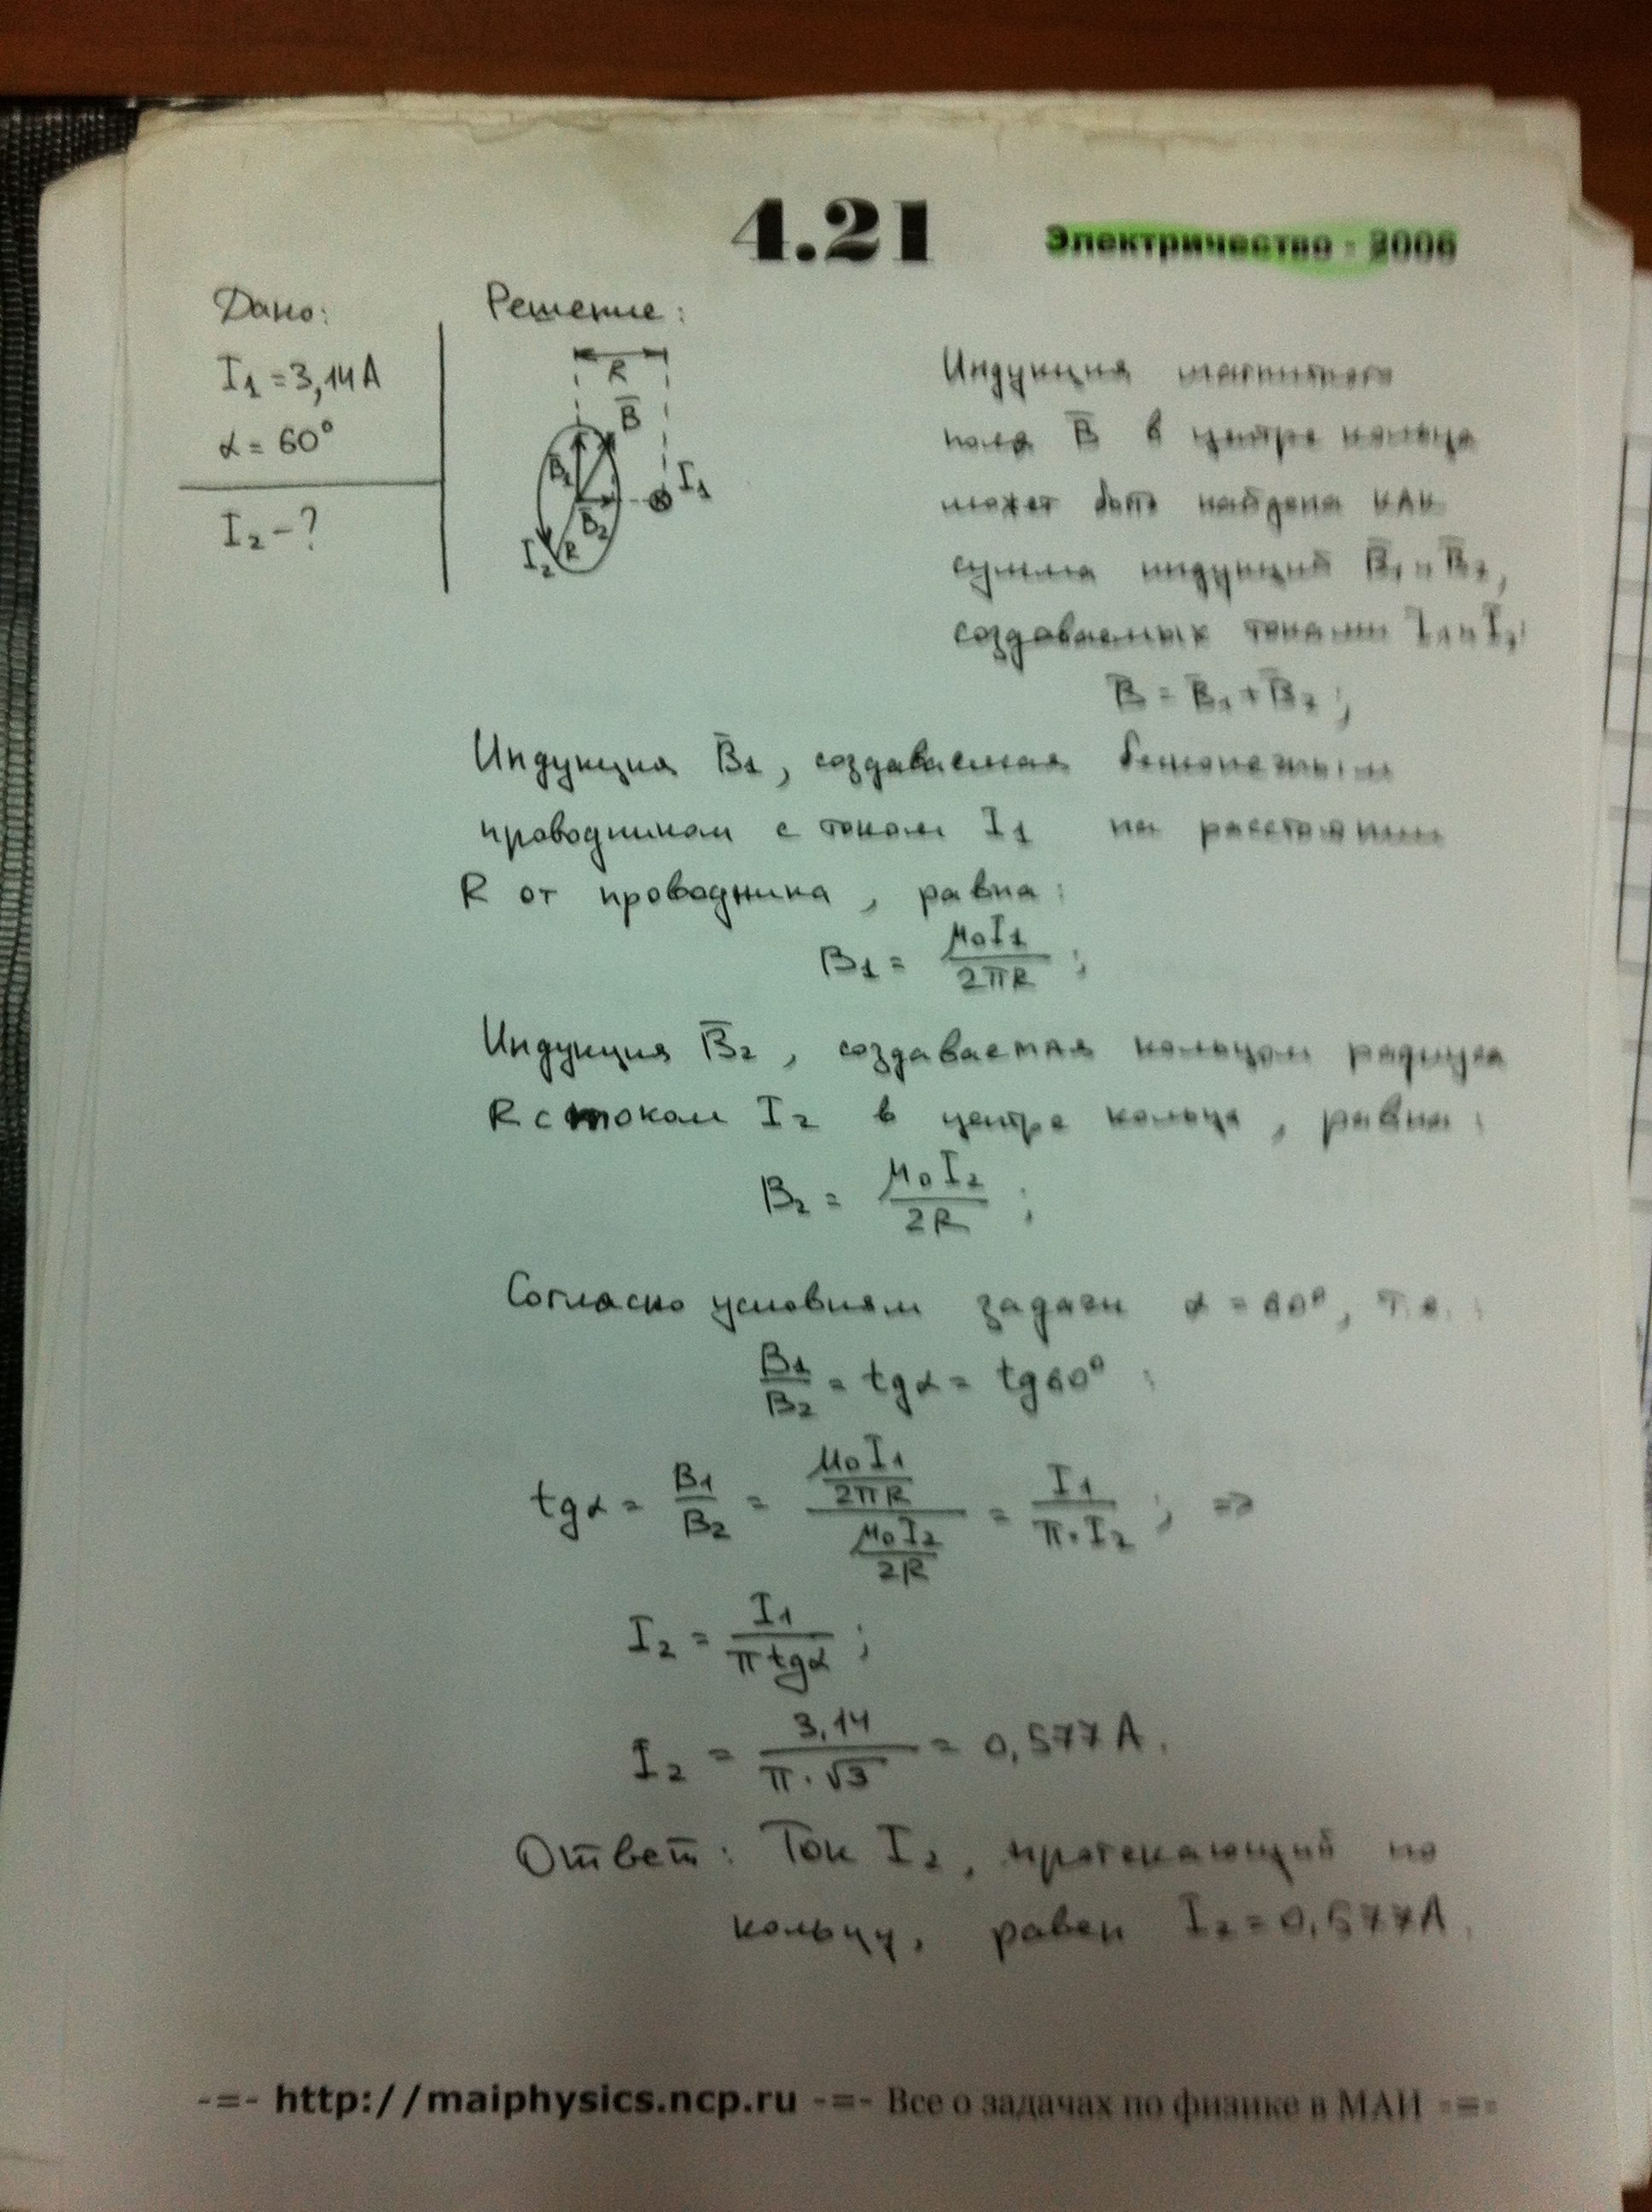 4.21
Электричество - 2006
Дано:
I₁ = 3,14 A
α = 60°
I₂ - ?
Решение:
R
B̅
B̅₁
I₁
B̅₂
R
I₂
Индукция магнитного
поля B̅ в центре кольца
может быть найдена как
сумма индукций B̅₁ и B̅₂,
создаваемых токами I₁ и I₂:
B̅ = B̅₁ + B̅₂ ;
Индукция B̅₁, создаваемая бесконечным
проводником с током I₁ на расстоянии
R от проводника, равна:
B₁ = μ₀I₁ / 2πR ;
Индукция B̅₂, создаваемая кольцом радиуса
R с током I₂ в центре кольца, равна:
B₂ = μ₀I₂ / 2R ;
Согласно условиям задачи α = 60°, т.е. :
B₁ / B₂ = tgα = tg60° ;
tgα = B₁ / B₂ = (μ₀I₁ / 2πR) / (μ₀I₂ / 2R) = I₁ / π·I₂ ; =>
I₂ = I₁ / π tgα ;
I₂ = 3,14 / π·√3 = 0,577 A.
Ответ: Ток I₂, протекающий по
кольцу, равен I₂ = 0,577 A.
-=- http://maiphysics.ncp.ru -=- Все о задачах по физике в МАИ -=-